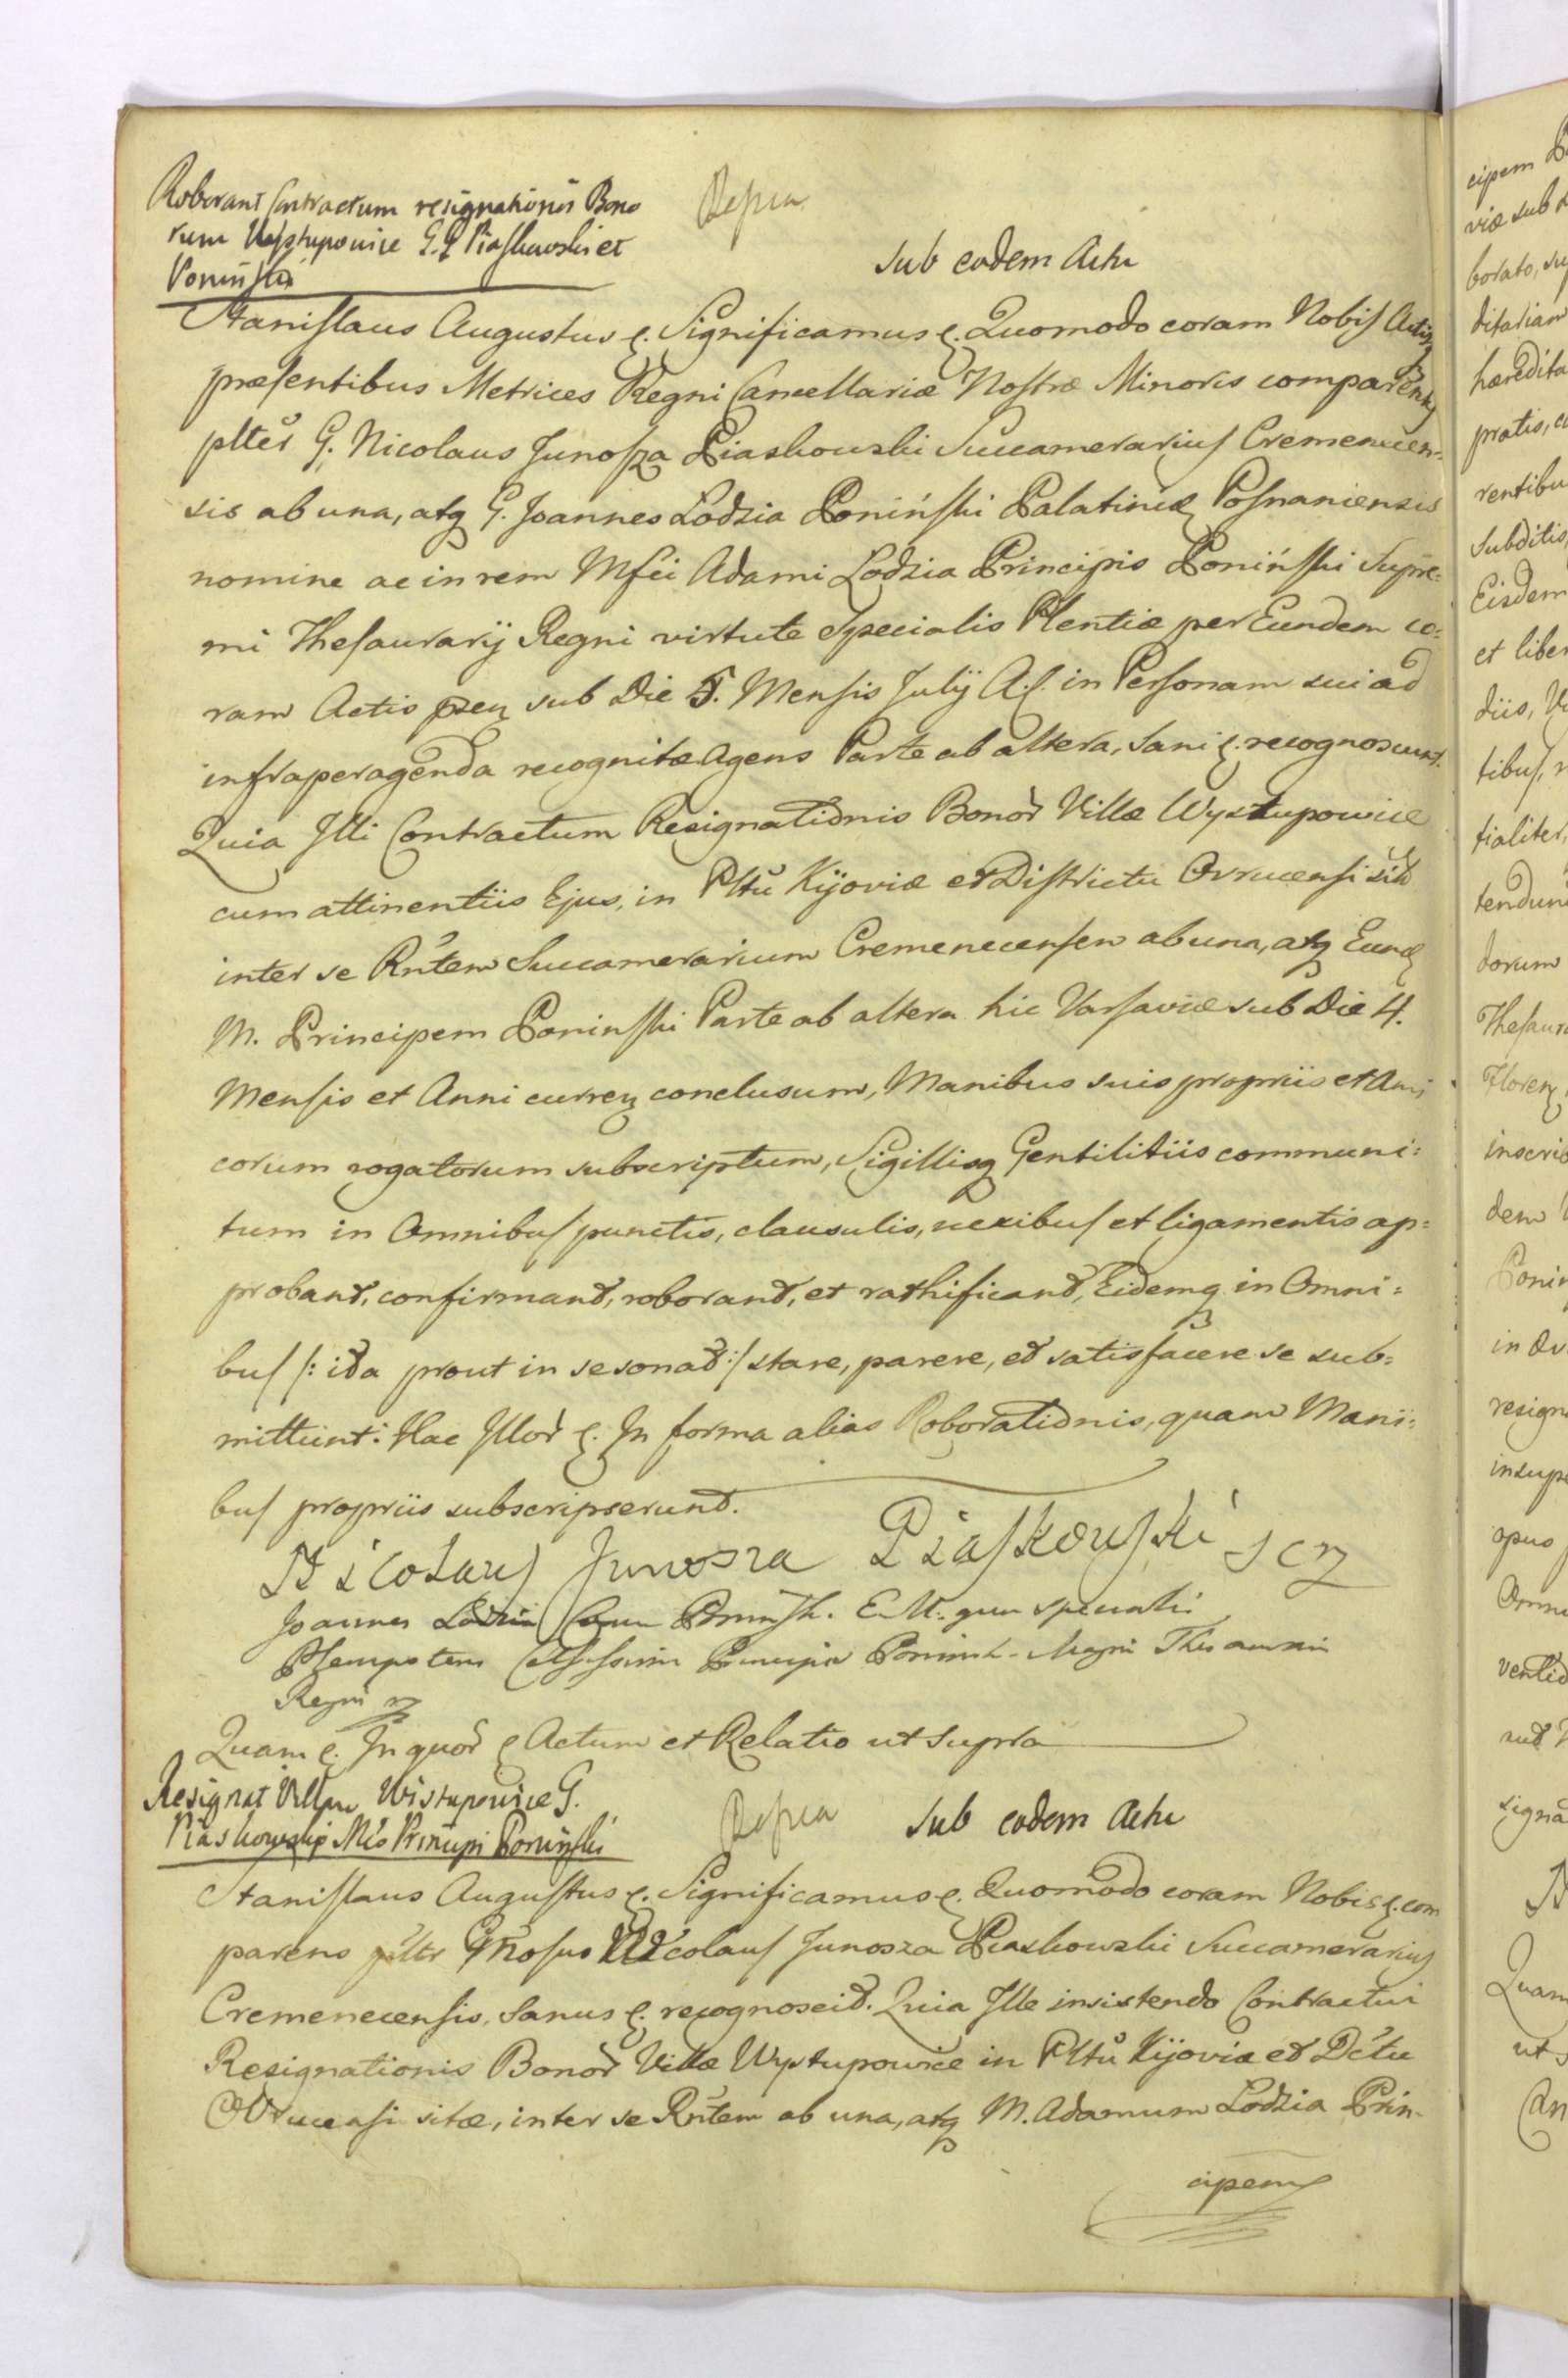 Roborant Contractum resignationis Bono
rum Wystupowice G.G. Piaskowski et
Poniński
Repca
Sub eodem Actu
Stanislaus Augustus &. Significamus &. Quomodo coram Nobis Actisq
præsentibus Metrices Regni Cancellariæ Nostræ Minoris comparentes
plter G. Nicolaus Junosza Piaskowski Succamerarius Cremenecen=
sis ab una, atq G. Joannes Lodzia Poniński Palatinid Posnaniensis
nomine ac in rem Mfci Adami Lodzia Principis Poniński Supre=
mi Thesaurarij Regni virtute Specialis Plentiæ per Eundem co=
ram Actis pzen sub Die 5. Mensis Julij A. c. in Personam sui ad
infraperagenda recognitæ Agens Parte ab altera, Sani &. recognoscunt.
Quia Illi Contractum Resignationis Bonor Villæ Wystupowice
cum attinentiis Ejus, in Pltu Kijoviæ et Districtu Ovrucensi sit
inter se Rntem Succamerarium Cremenecensem ab una, atq Eund
M. Principem Poninski Parte ab altera hic Varsaviæ sub Die 4.
Mensis et Anni curren conclusum, Manibus suis propriis et Ami
corum rogatorum subscriptum, Sigillisq Gentilitiis communi=
tum in Omnibus punctis, clausulis, nexibus et ligamentis ap=
probant, confirmant, roborant, et rathificant, Eidemq in Omni=
bus /: ita prout in se sonat :/ stare, parere, et satisfacere se sub=
mittunt: Hac Illor &. In forma alias Roborationis, quam Mani=
bus propriis subscripserunt.
Nicolaus Junosza Piaskowski SCrz
Joannes Lodzia Poninski. qua specialis
Plenipotens Celsissimi Principis Poninsk. Magni Thesaurarii
Regni
Quam &. In quor & Actum et Relatio ut supra
Resignat Villam Wistupowice G.
Piaskowski Mco Principi Poniński
Repca
Sub eodem Actu
Stanislaus Augustus &. Significamus &. Quomodo coram Nobis &. com
parens plter Gnosus Nicolaus Junosza Piaskowski Succamerarius
Cremenecensis, Sanus &. recognoscit. Quia Ille insistendo Contractui
Resignationis Bonor Villæ Wystupowice in Pltu Kijoviæ et Dctu
Ovrucensi sitæ, inter se Rntem ab una, atq M. Adamum Lodzia Prin-
cipem
cipem
viæ sub
borato, su
ditariam
hæredita
pratis, c
rentibu
Subditis,
Eisdem
et liber
diis,
tibus,
tialiter,
tendun
dorum
Thesaur
Floren
inscrib
dem
Ponin
in
resign
insup
opus
Omni
ventio
signa
Quam
ut